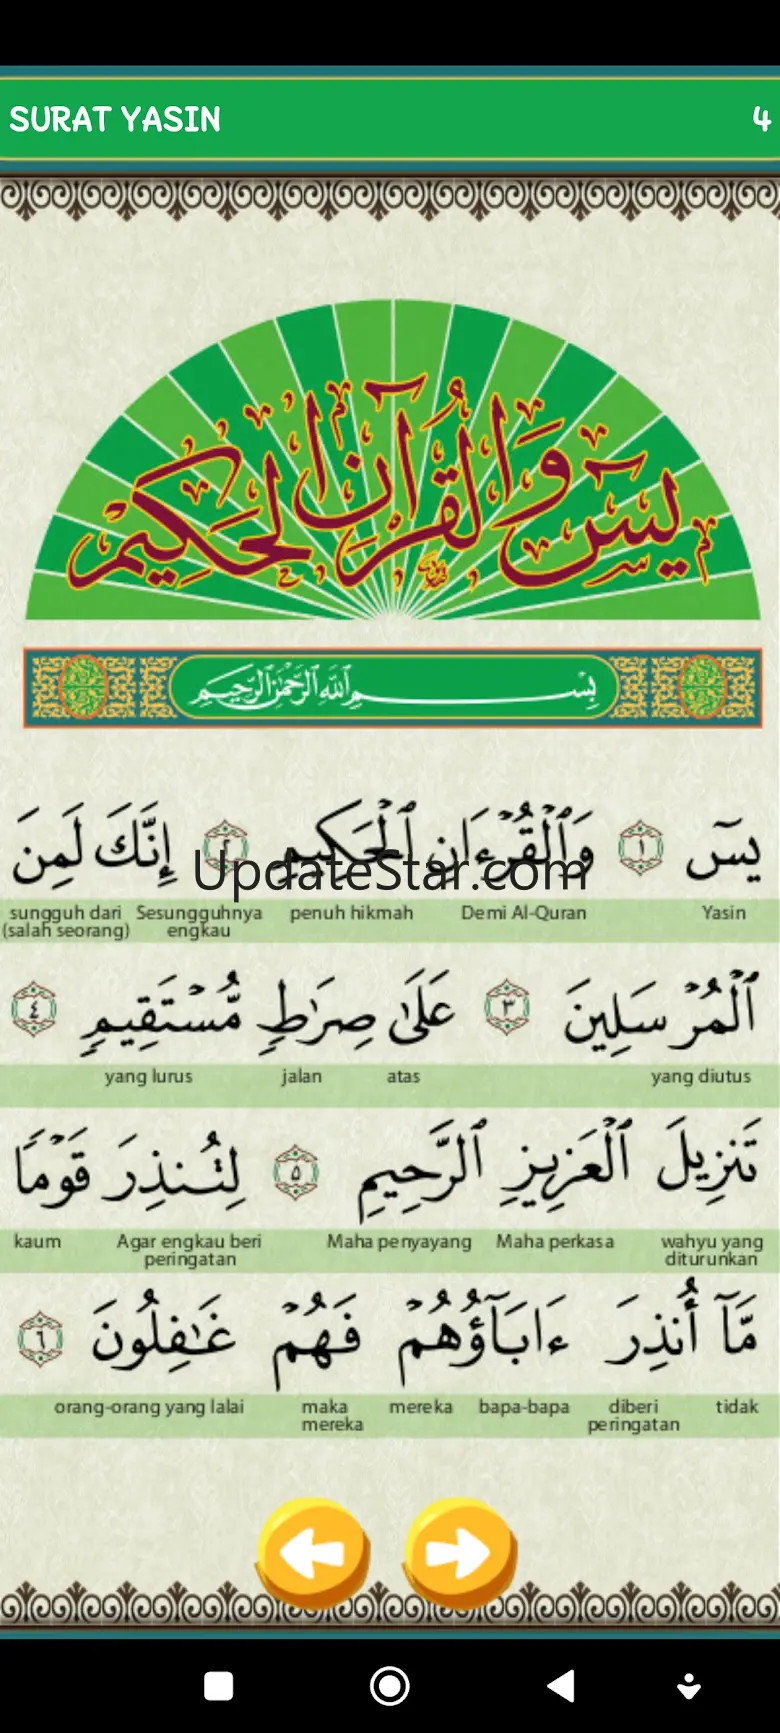 SURAT YASIN 4
يسٓ وَالْقُرْآنِ الْحَكِيمِ
بِسْمِ ٱللَّهِ ٱلرَّحْمَٰنِ ٱلرَّحِيمِ
يسٓ ١ وَٱلْقُرْءَانِ ٱلْحَكِيمِ ٢ إِنَّكَ لَمِنَ
UpdateStar.com
Yasin Demi Al-Quran penuh hikmah Sesungguhnya engkau sungguh dari (salah seorang)
ٱلْمُرْسَلِينَ ٣ عَلَىٰ صِرَٰطٍ مُّسْتَقِيمٍ ٤
yang diutus atas jalan yang lurus
تَنزِيلَ ٱلْعَزِيزِ ٱلرَّحِيمِ ٥ لِتُنذِرَ قَوْمًا
wahyu yang diturunkan Maha perkasa Maha penyayang Agar engkau beri peringatan kaum
مَّآ أُنذِرَ ءَابَآؤُهُمْ فَهُمْ غَٰفِلُونَ ٦
tidak diberi peringatan bapa-bapa mereka maka mereka orang-orang yang lalai